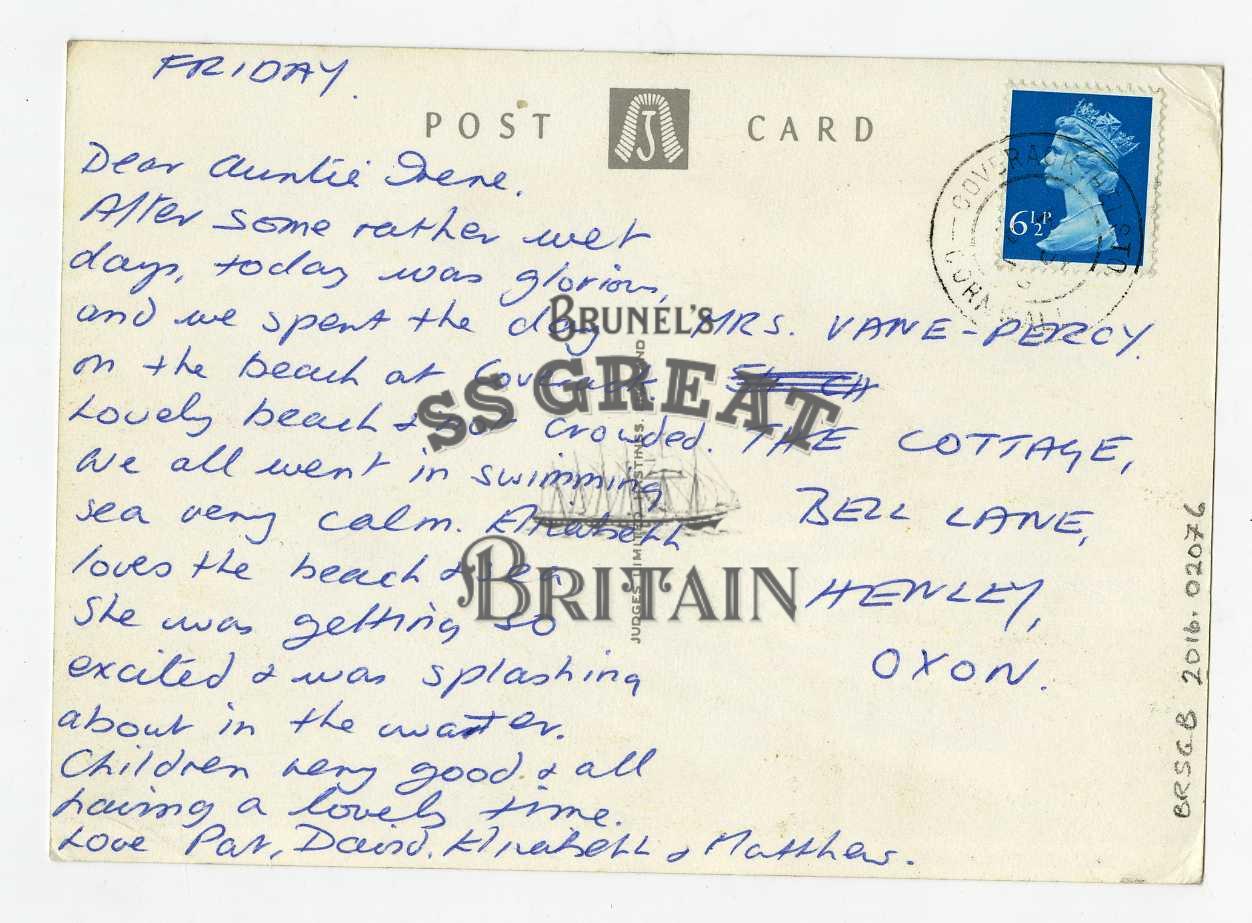 FRIDAY.
POST CARD
Dear Auntie Irene.
After some rather wet
days, today was glorious,
and we spent the day
on the beach at Coverack.
Lovely beach & not crowded.
We all went in swimming
sea very calm. Elizabeth
loves the beach & sea
She was getting so
excited & was splashing
about in the water.
Children very good & all
having a lovely time.
Love Pat, David, Elizabeth & Matthew.
MRS. VANE-PERCY.
THE COTTAGE,
BELL LANE,
HENLEY,
OXON.
6½P
COVERACK HELSTO
CORNWALL
J
BRUNEL'S
SS GREAT
BRITAIN
JUDGES LIMITED HASTINGS
BRSGB 2016.02076